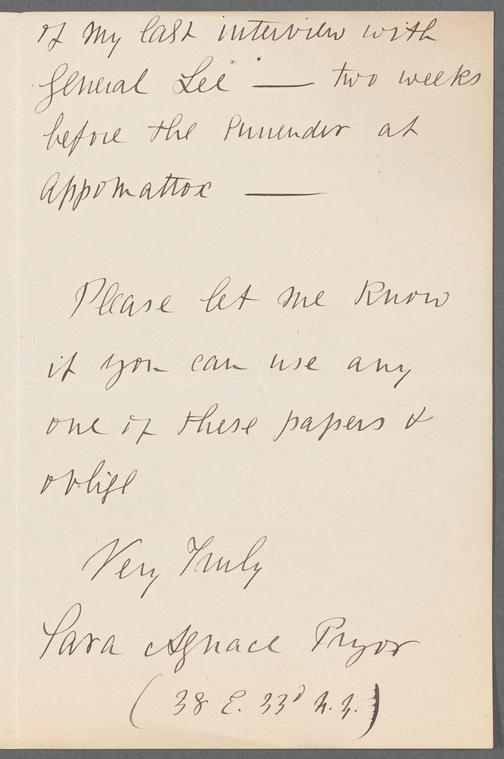 of my last interview with
General Lee — two weeks
before the surrender at
Appomattox —
Please let me know
if you can use any
one of these papers &
oblige
Very Truly
Sara Agnace Pryor
(38 E. 33d N.Y.)